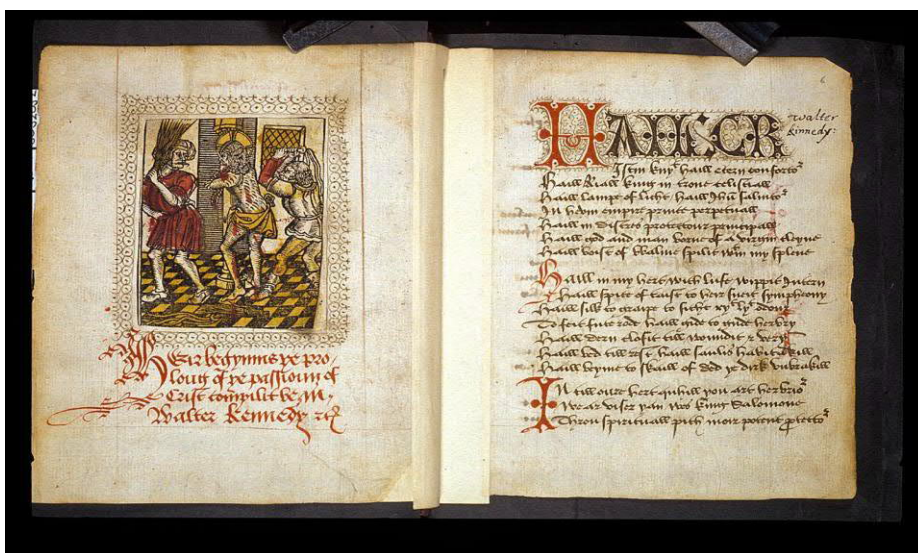 Heir begynnis þe pro-
loug of þe passioun of
Crist compilit be M,
Walter Kennedy
6
Walter
Kennedy:
HAILL CR
istin kny haill etern confort
Haill Riall king in trone celistiall
Haill lampe of licht haill Ihu
In hevin empire prince perpetuall
In distres protectour principall
Haill god and man borne of a virgin cleyne
Haill boist of balime spilit win my splene
Haill in my hert with lufe wippit Intern
Haill spice of taist to heir sueit symphony
Haill silk to graipe to sicht
To feit fute rod haill gid to gude herbry
Haill dern closit till woundit &
Haill bed till rest haill saulis habitakill
Haill leyme to skaill of ded þe dirk
In till oure hert quhill þou art
Wear viser þan wes king Salomone
Throu spirituall pith moir potent